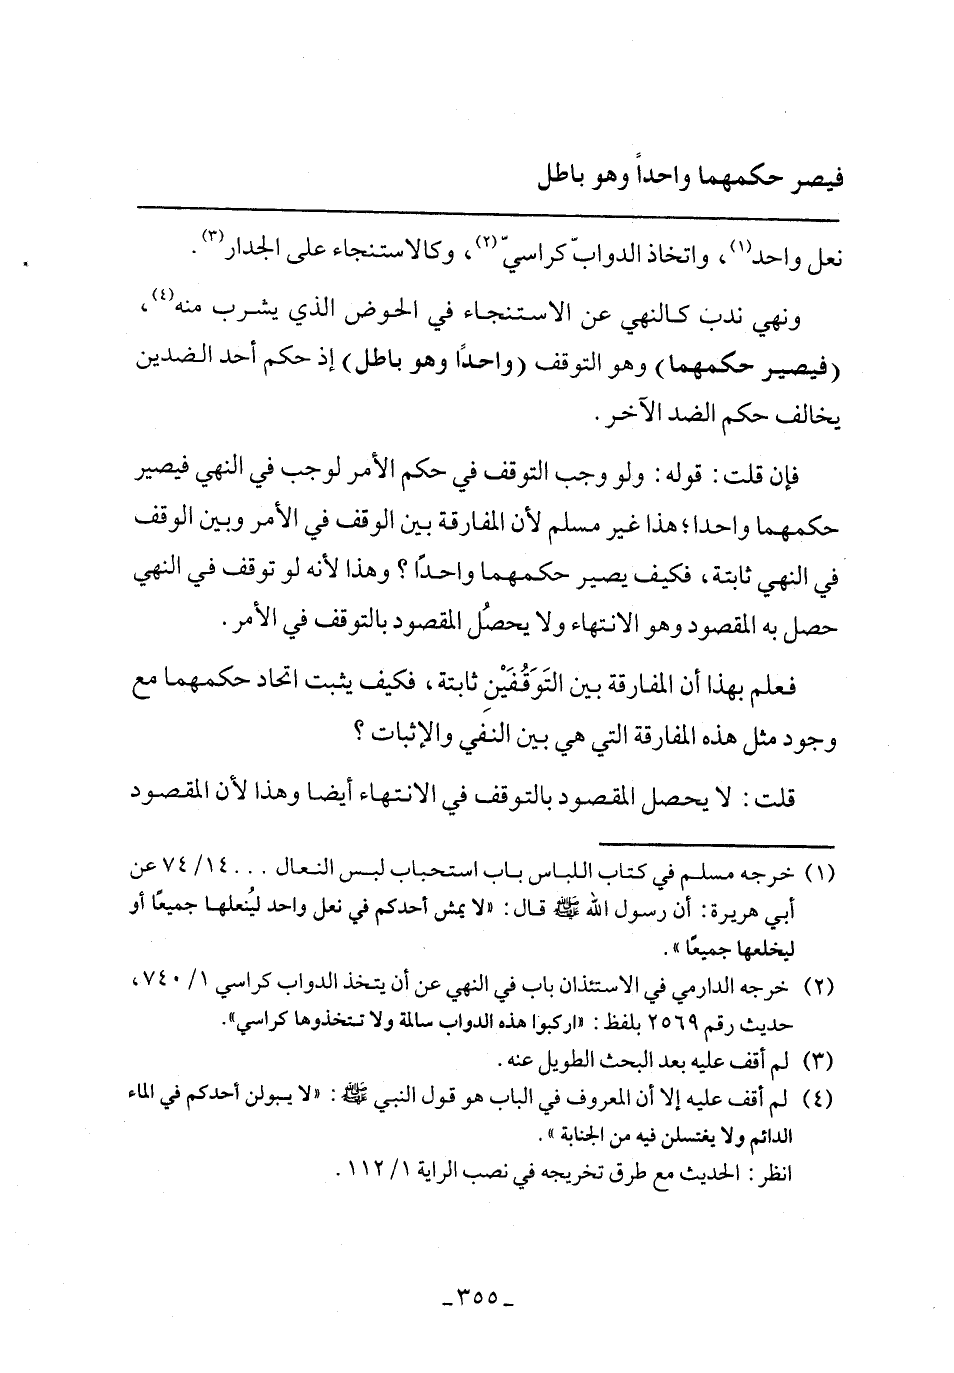 فيصر حكمهما واحداً وهو باطل
نعل واحد(١)، واتخاذ الدوابّ كراسيّ(٢)، وكالاستنجاء على الجدار(٣).
ونهي ندب كالنهي عن الاستنجاء في الحوض الذي يشرب منه(٤)،
(فيصير حكمهما) وهو التوقف (واحدًا وهو باطل) إذ حكم أحد الضدين
يخالف حكم الضد الآخر.
فإن قلت: قوله: ولو وجب التوقف في حكم الأمر لوجب في النهي فيصير
حكمهما واحدا؛ هذا غير مسلم لأن المفارقة بين الوقف في الأمر وبين الوقف
في النهي ثابتة، فكيف يصير حكمهما واحدًا؟ وهذا لأنه لو توقف في النهي
حصل به المقصود وهو الانتهاء ولا يحصُل المقصود بالتوقف في الأمر.
فعلم بهذا أن المفارقة بين التَوَقُفَيْنِ ثابتة، فكيف يثبت اتحاد حكمهما مع
وجود مثل هذه المفارقة التي هي بين النفي والإثبات؟
قلت: لا يحصل المقصود بالتوقف في الانتهاء أيضا وهذا لأن المقصود
(١) خرجه مسلم في كتاب اللباس باب استحباب لبس النعال ... ٧٤/١٤ عن
أبي هريرة: أن رسول الله ﷺ قال: «لا يمش أحدكم في نعل واحد ليُنعلها جميعًا أو
ليخلعها جميعًا».
(٢) خرجه الدارمي في الاستئذان باب في النهي عن أن يتخذ الدواب كراسي ٧٤٠/١،
حديث رقم ٢٥٦٩ بلفظ: «اركبوا هذه الدواب سالمة ولا تتخذوها كراسي».
(٣) لم أقف عليه بعد البحث الطويل عنه.
(٤) لم أقف عليه إلا أن المعروف في الباب هو قول النبي ﷺ: «لا يبولن أحدكم في الماء
الدائم ولا يغتسلن فيه من الجنابة».
انظر: الحديث مع طرق تخريجه في نصب الراية ١١٢/١.
ـ ٣٥٥ ـ